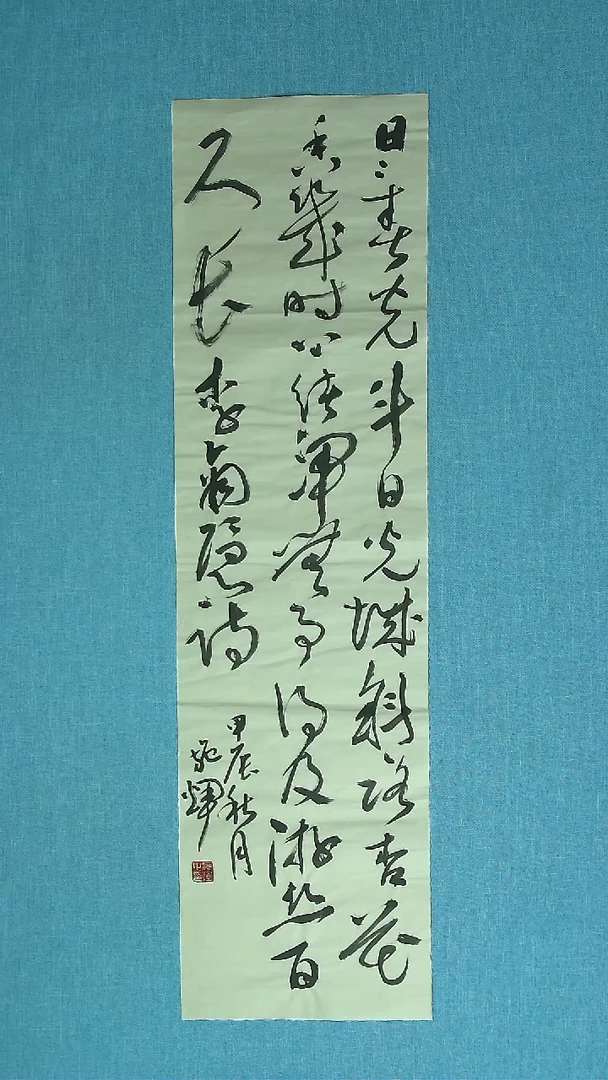 日日春光斗日光城斜路杏花
香幾时心绪浑無事得及游丝百
尺长李商隐诗
甲辰秋月